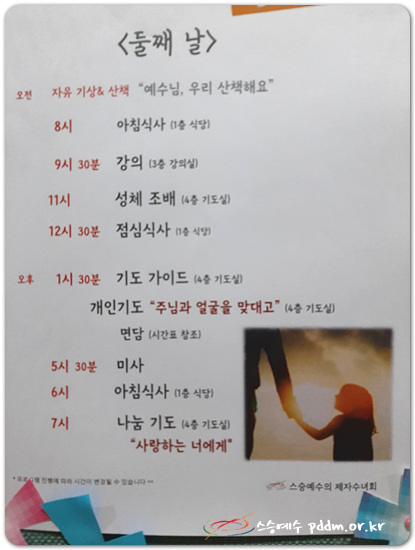 <둘째 날>
오전 자유 기상& 산책 “예수님, 우리 산책해요”
8시 아침식사 (1층 식당)
9시 30분 강의 (3층 강의실)
11시 성체 조배 (4층 기도실)
12시 30분 점심식사 (1층 식당)
오후 1시 30분 기도 가이드 (4층 기도실)
개인기도 “주님과 얼굴을 맞대고” (4층 기도실)
면담 (시간표 창조)
5시 30분 미사
6시 아침식사 (1층 식당)
7시 나눔 기도 (4층 기도실)
“사랑하는 너에게”
* 프로그램 진행에 따라 시간이 변경될 수 있습니다 ^^
스승예수의 제자수녀회
스승예수 pddm.or.kr